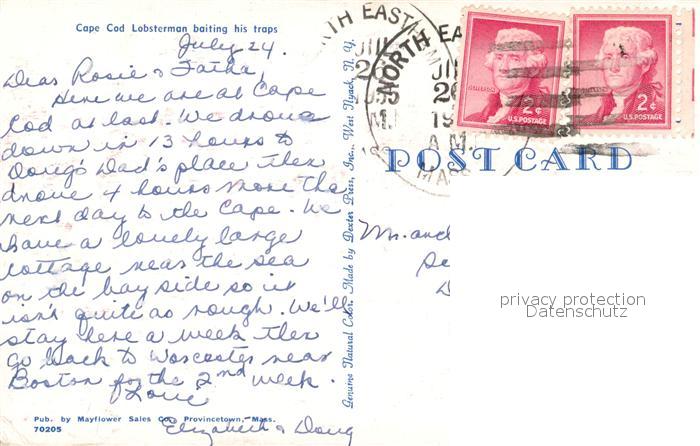 Cape Cod Lobsterman baiting his traps
July 24.
Dear Rosie & Fatha,
Here we are at Cape
Cod at last. We drove
down in 13 hours to
Doug's Dad's place then
drove 4 hours more the
next day to the Cape. We
have a lovely large
cottage near the sea
on the bay side so it
isn't quite so rough. We'll
stay here a week then
go back to Worcester near
Boston for the 2nd week.
Love
Elizabeth & Doug
Pub. by Mayflower Sales Co., Provincetown, Mass.
70205
Genuine Natural Color. Made by Dexter Press, Inc., West Nyack, N. Y.
NORTH EAST
JUL
26
A.M.
MASS
NORTH EA
JUL
26
19
A.M.
MASS
JEFFERSON
2¢
U.S. POSTAGE
2¢
U.S. POSTAGE
POST CARD
Mr. and
privacy protection
Datenschutz